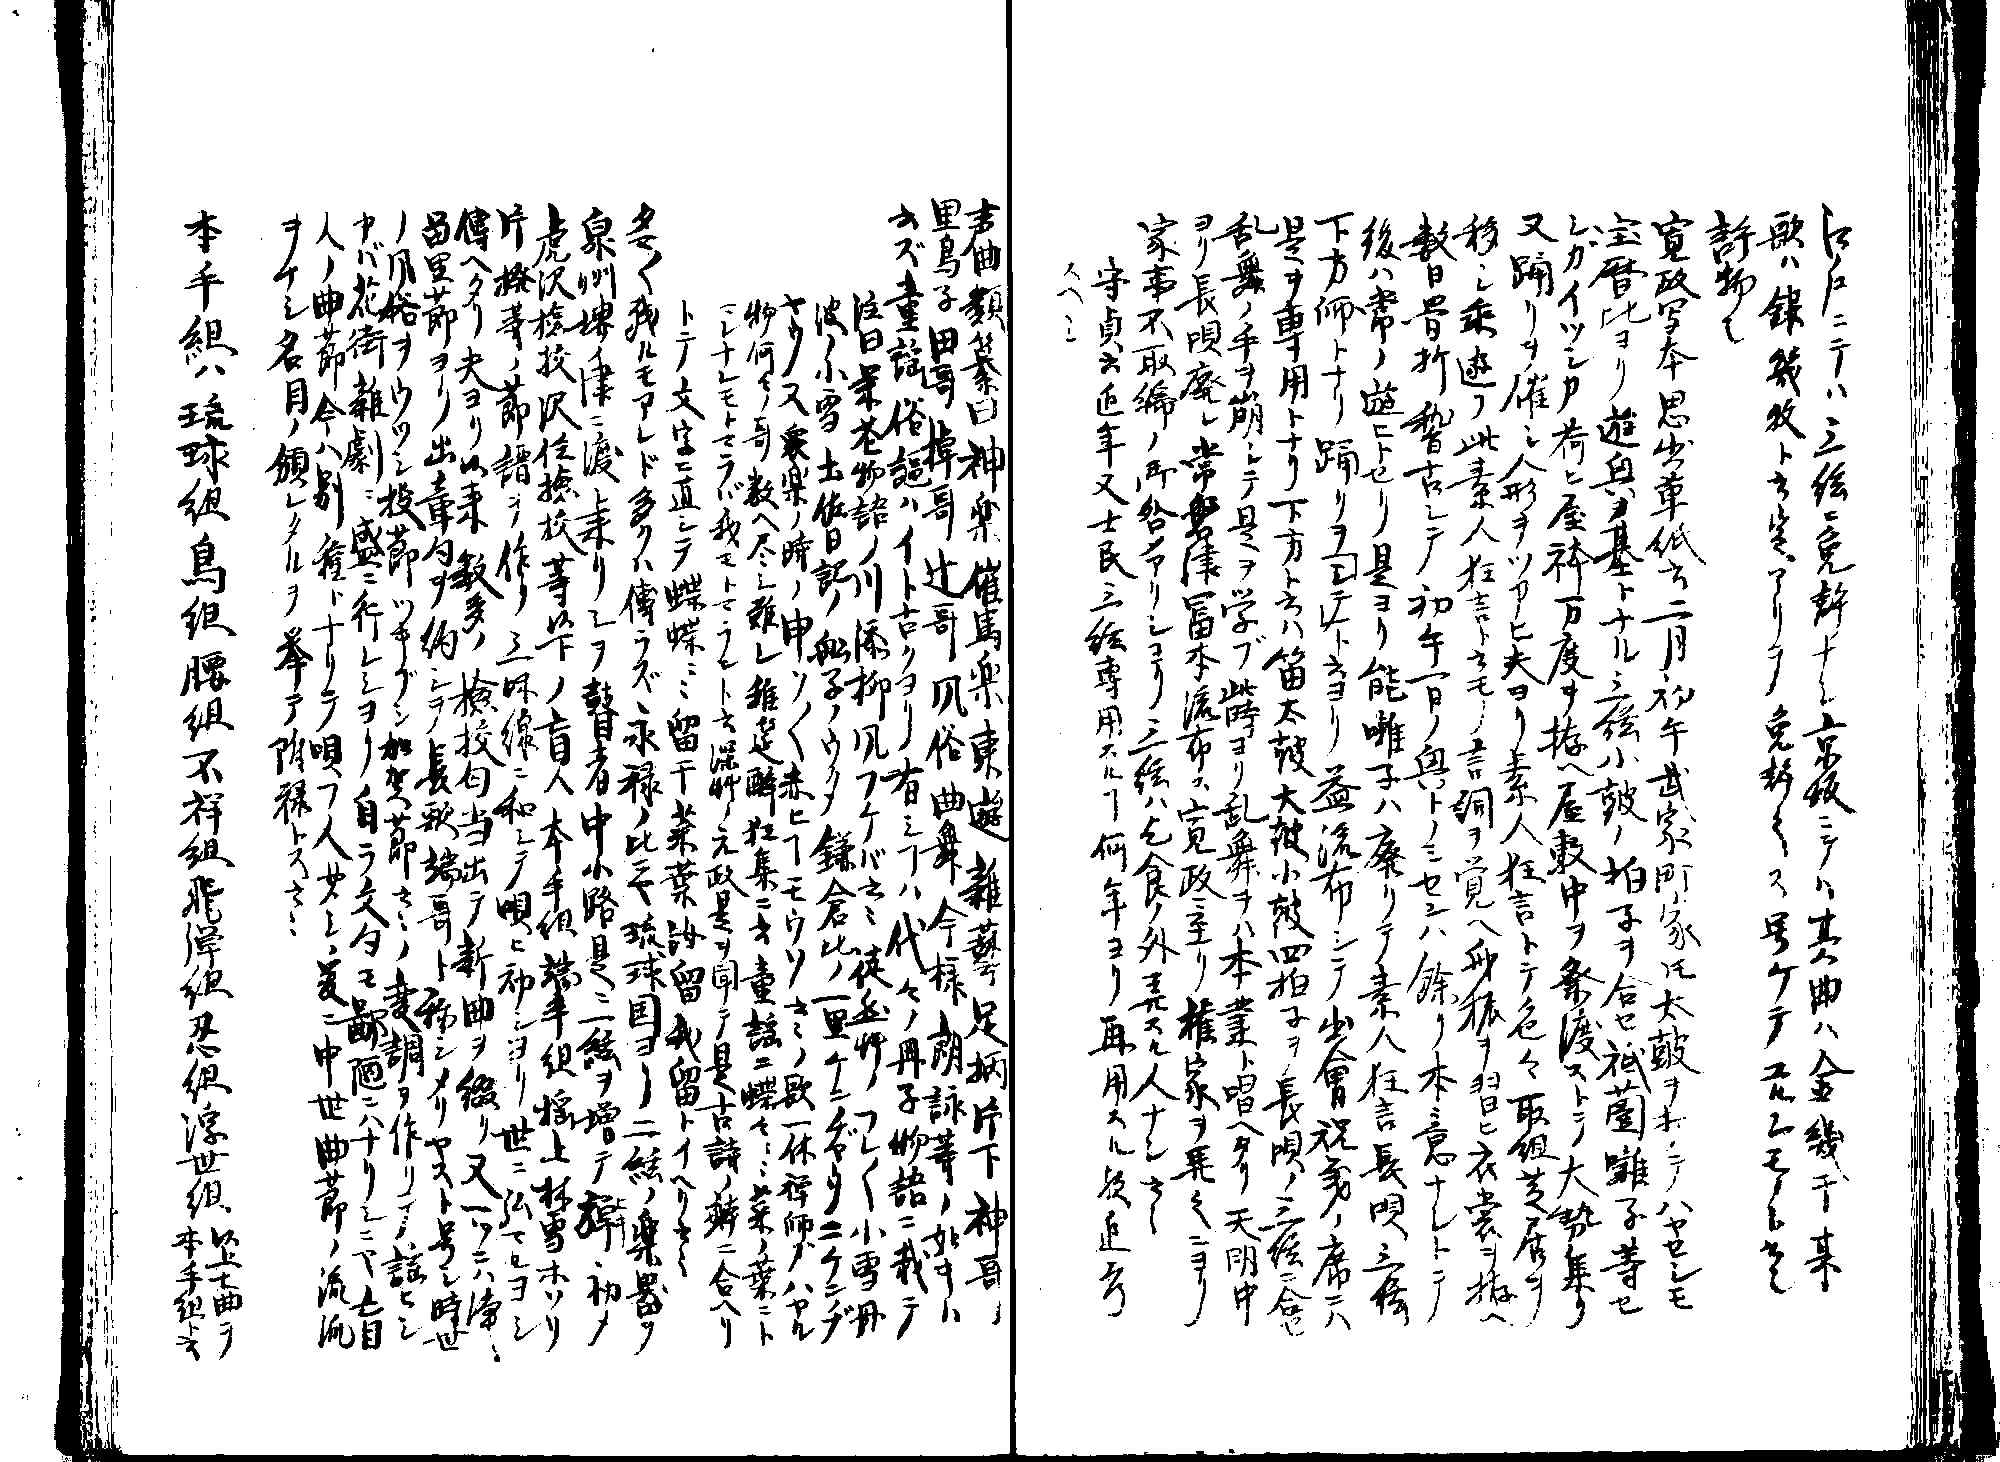 江戸ニテハ三絃ニ免許ナシ京坂ニテハ其曲ハ金幾干某
歌ハ銀幾枚ト云定アリテ免許ス号ケテユルシモノト云
許物也
寛政写本思出草紙云二月初午武家町家氏太鼓ヲ打ハヤセシモ
宝暦比ヨリ遊興ヲ基トナル三絃小鼓ノ拍子ヲ合セ祇薗囃子等セ
シガイツシカ荷ヒ屋神万度ヲ拵ヘ屋敷中ヲ祭渡ストテ大勢集リ
又踊リヲ催シ人形ヲツカヒ夫ヨリ素人狂言トテ色々取組芝居ヲ
移シ乗遊フ此素人狂言ト云モノ言詞ヲ覚ヘ身振ヲ習ヒ衣裳ヲ拵ヘ
数日骨折稽古シテ初午一日ノ興トノミセンハ餘リ本意ナシトテ
後ハ常ノ遊ヒトセリ是ヨリ能囃子ハ廃リテ素人狂言長唄三絃
下方師トナリ踊リヲ云ヨリ益流布シテ出會祝義ノ席ニハ
是ヲ専用トナリ下方ト云ハ笛太鼓大鼓小鼓四拍子ヲ長唄ノ三絃ニ合セ
乱舞ノ手ヲ崩シテ是ヲ学ブ此時ヨリ乱舞ヲハ本業ト唱ヘタリ天明中
ヨリ長唄廃レ常磐津冨本流布ス寛政ニ至リ権家ヲ
家事不取締ノ御咎アリシヨリ三絃ハ乞食ノ外弄スル人ナシ云々
守貞云近年又士民三絃専用スル何年ヨリ再用スル歟追考
スヘシ
声曲類纂曰神楽催馬楽東遊雑藝足柄片下神哥ノ
里鳥子田哥棹哥辻哥風俗曲舞今様朗詠等ノ始ヲハ
云ズ童謡俗謡ハイト古クヨリ有シハ代々ノ冊子物語ニ載テ
注曰栄花物語ノ川添柳風フケバ云々徒然草ノフレ〳〵小雪丹
波ノ小雪土佐日記ノ舩子ノウタ鎌倉比ノ一里ケンヂヤウ二ケンヂ
ヤウ又衆楽ノ時ノ申ツ〳〵赤ヒテモウツ云々ノ歌一休禅師ガハヤル
物何々ノ哥数ヘ尽シ難シ雄筵酔狂集ニ云童謡ニ蝶々々菜ノ葉ニト
マレナレモトマラバ我モトマラント云深艸ノ元政是ヲ聞テ是古詩ノ辞ニ合ヘリ
トテ文字ニ直シテ蝶蝶々々留干菜葉汝留我留トイヘリ云々
多ク残ルモアレド多クハ傳ラズ永禄ノ比琉球国ヨリ二絃ノ楽器ヲ
泉州堺ノ津ニ渡シ来リシヲ瞽者中小路是ニ二絃ヲ増テ弾初メ
虎沢撿挍沢住撿挍等以下ノ盲人本手組端手組揺上林雪ホソリ
片撥等ノ節譜ヲ作リ三味線ニ和シテ唄ヒ初シヨリ世ニ弘マレヨシ
傳ヘタリ夫ヨリ以来数多ノ撿挍勾当出テ新曲ヲ綴リ又一ツニハ浄
留里節ヨリ出章句ヲ約シテ長歌端哥ト稱シメリヤスト号シ時世
ノ風俗ヲウツシ投節ツキブシ加賀節云々ノ変調ヲ作リテハ謡ヒシ
カバ花街雜劇ニ盛ニ行レシヨリ自ラ文句モ鄙陋ニハナリシニヤ古目
人ノ曲節今ハ別種トナリテ唄フ人サヘ爰ニ中世曲節ノ流派
ヲワケシ名目ノ顕レタルヲ挙テ附禄トス云々
本手組ハ琉球組鳥組腰組不祥組飛渾組忍組浮世組以上七曲ヲ
本手組ト云